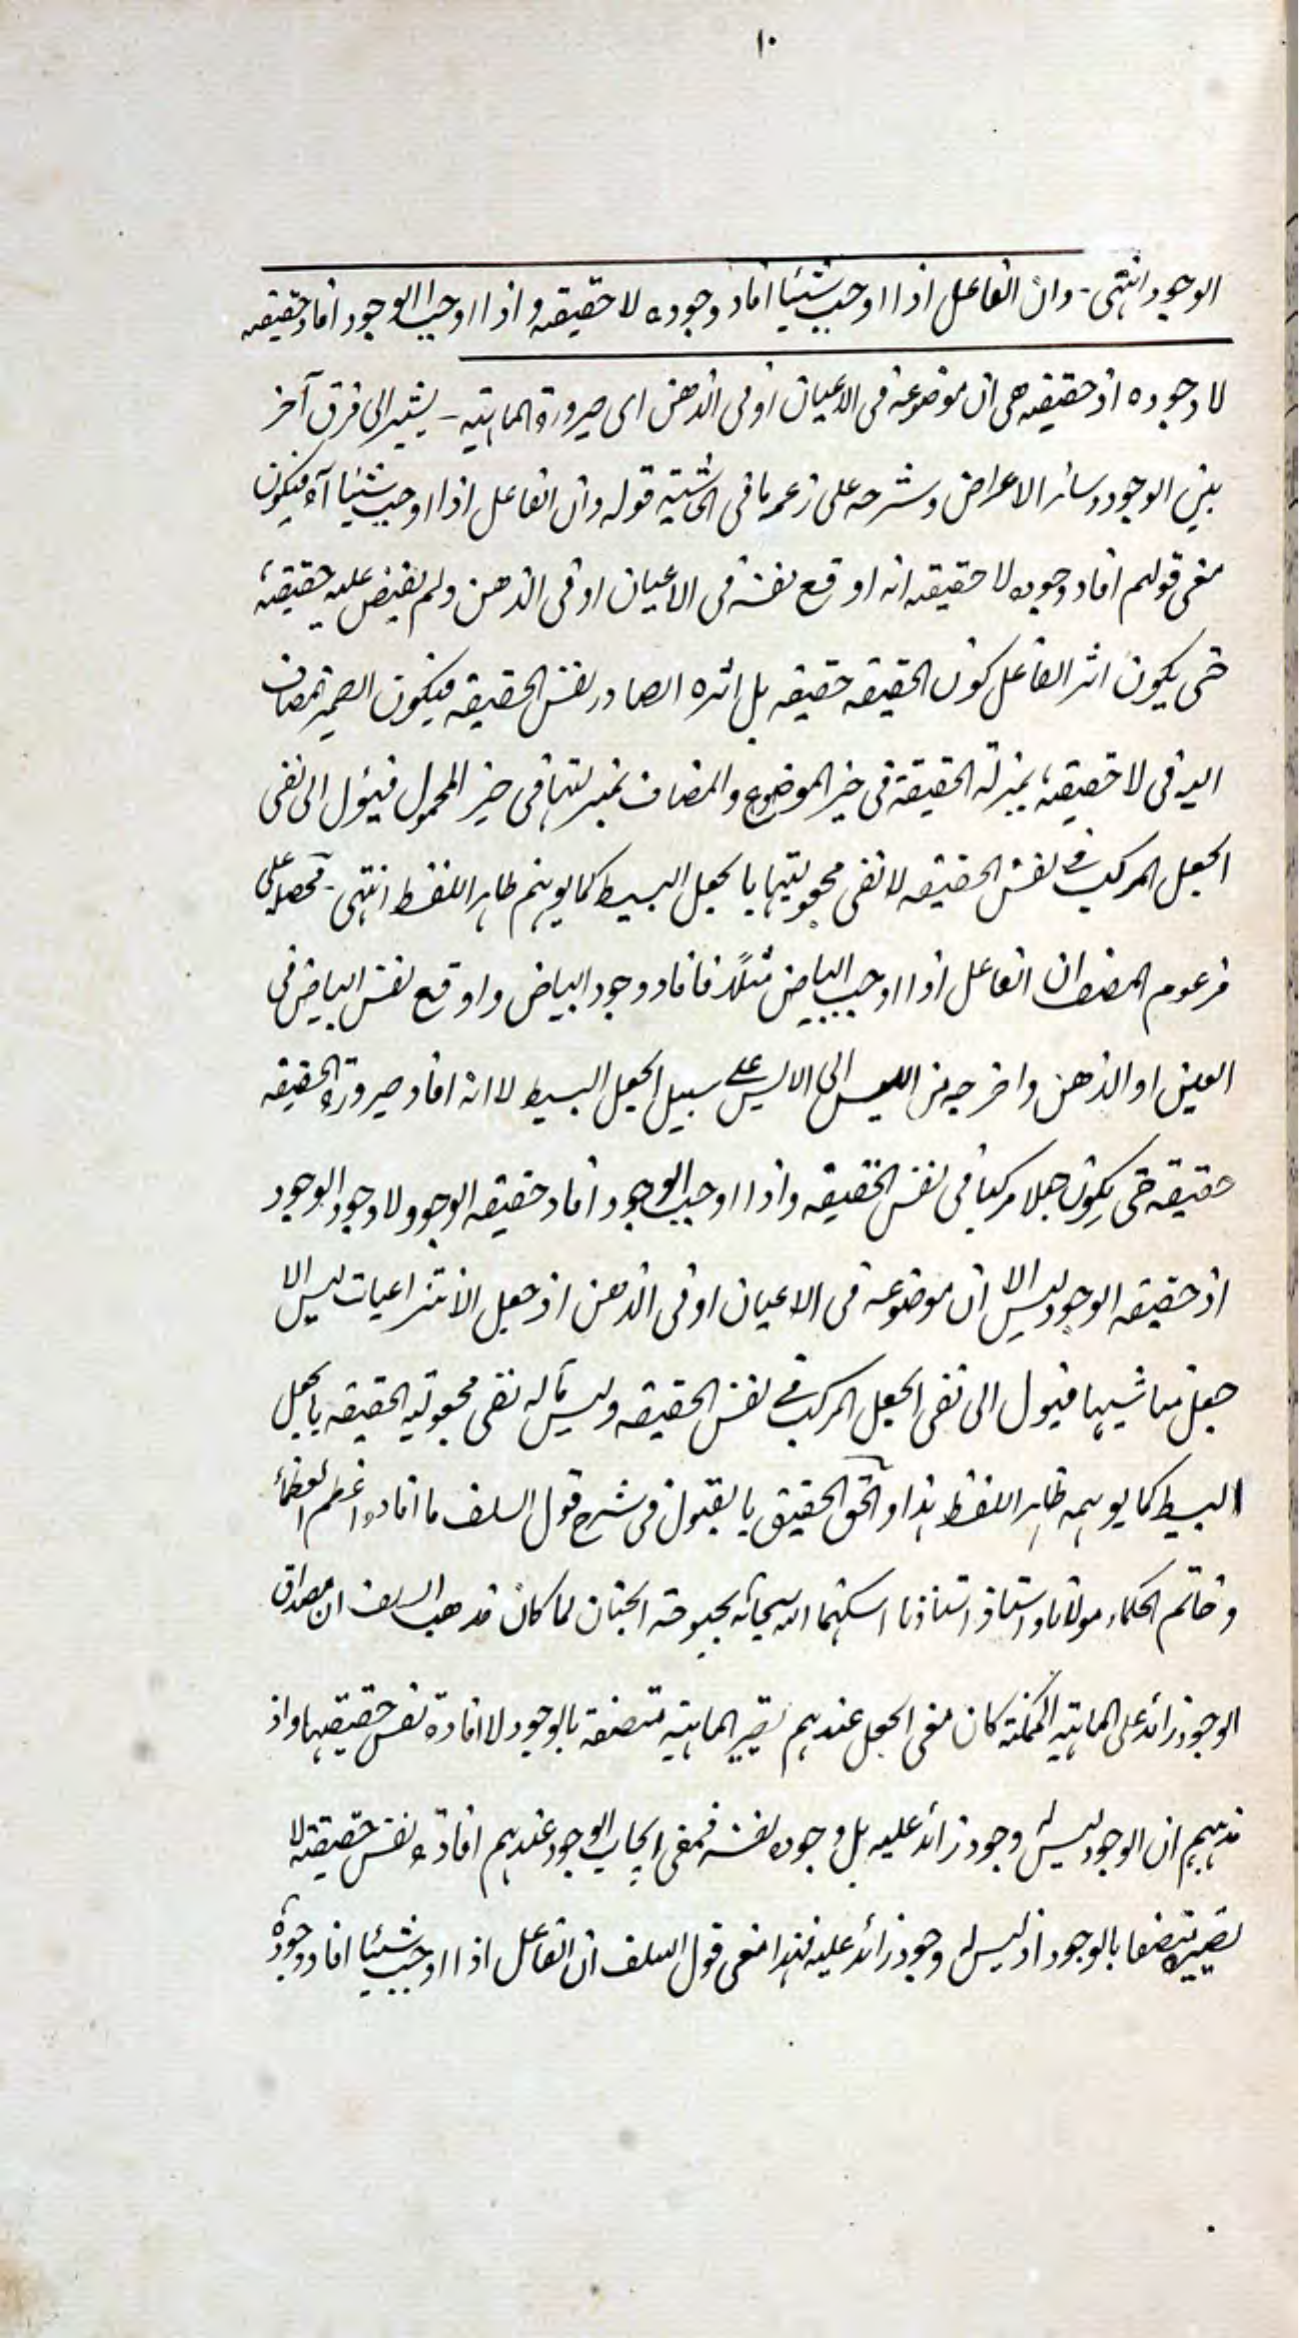 ١٠
الوجود انتهى - وان الفاعل اذا اوجب شيئا افاد وجوده لا حقيقته و اذا اوجب الوجود افاد حقيقته
لا وجوده اذ حقيقته هى ان موضوعه فى الاعيان او فى الذهن اى صيرورة الماهية - يشير الى فرق آخر
بين الوجود وسائر الاعراض وشرحه على زعمه ما فى الحاشية قوله وان الفاعل اذا اوجب شيئا آه فيكون
معنى قولهم افاد وجوده لا حقيقته انه اوقع نفسه فى الاعيان او فى الذهن ولم يفيض عليه حقيقته
حتى يكون اثر الفاعل كون الحقيقه حقيقه بل اثره الصادر نفس الحقيقه فيكون الضمير المضاف
اليه فى لا حقيقته بمنزلة الحقيقة فى حيز الموضوع والمضاف بمنزلتها فى حيز المحمول فيئول الى نفى
الجعل المركب فى نفس الحقيقه لا نفى مجعوليتها بالجعل البسيط كما يوهم ظاهر اللفظ انتهى - محصله على
مزعوم المصنف ان الفاعل اذا اوجب البياض مثلاً فافاد وجود البياض واوقع نفس البياض فى
العين او الذهن واخرجه من الليس الى الايس على سبيل الجعل البسيط لا انه افاد صيرورة الحقيقه
حقيقه حتى يكون جعلا مركبا فى نفس الحقيقه واذا اوجب الوجود افاد حقيقه الوجود لا وجود الوجود
اذ حقيقه الوجود ليس الا ان موضوعه فى الاعيان او فى الذهن اذ جعل الانتزاعيات ليس الا
جعل مناشيها فيول الى نفى الجعل المركب فى نفس الحقيقه وليس مآله نفى مجعولية الحقيقه بالجعل
البسيط كما يوهمه ظاهر اللفظ هذا والحق الحقيق بالقبول فى شرح قول السلف ما افاده اعظم العظماء
وخاتم الحكماء مولانا واستاذ استاذنا اسكنهما الله سبحانه بحبوحة الجنان لما كان مذهب السلف ان مصداق
الوجود زائد على الماهية الممكنة كان معنى الجعل عندهم تصيير الماهية متصفة بالوجود لا افادة نفس حقيقتها واذ
مذهبهم ان الوجود ليس له وجود زائد عليه بل وجوده نفسه فمعنى ايجاب الوجود عندهم افادة نفس حقيقته لا
تصييره متصفا بالوجود اذ ليس له وجود زائد عليه فهذا معنى قول السلف ان الفاعل اذا اوجب شيئا افاد وجوده